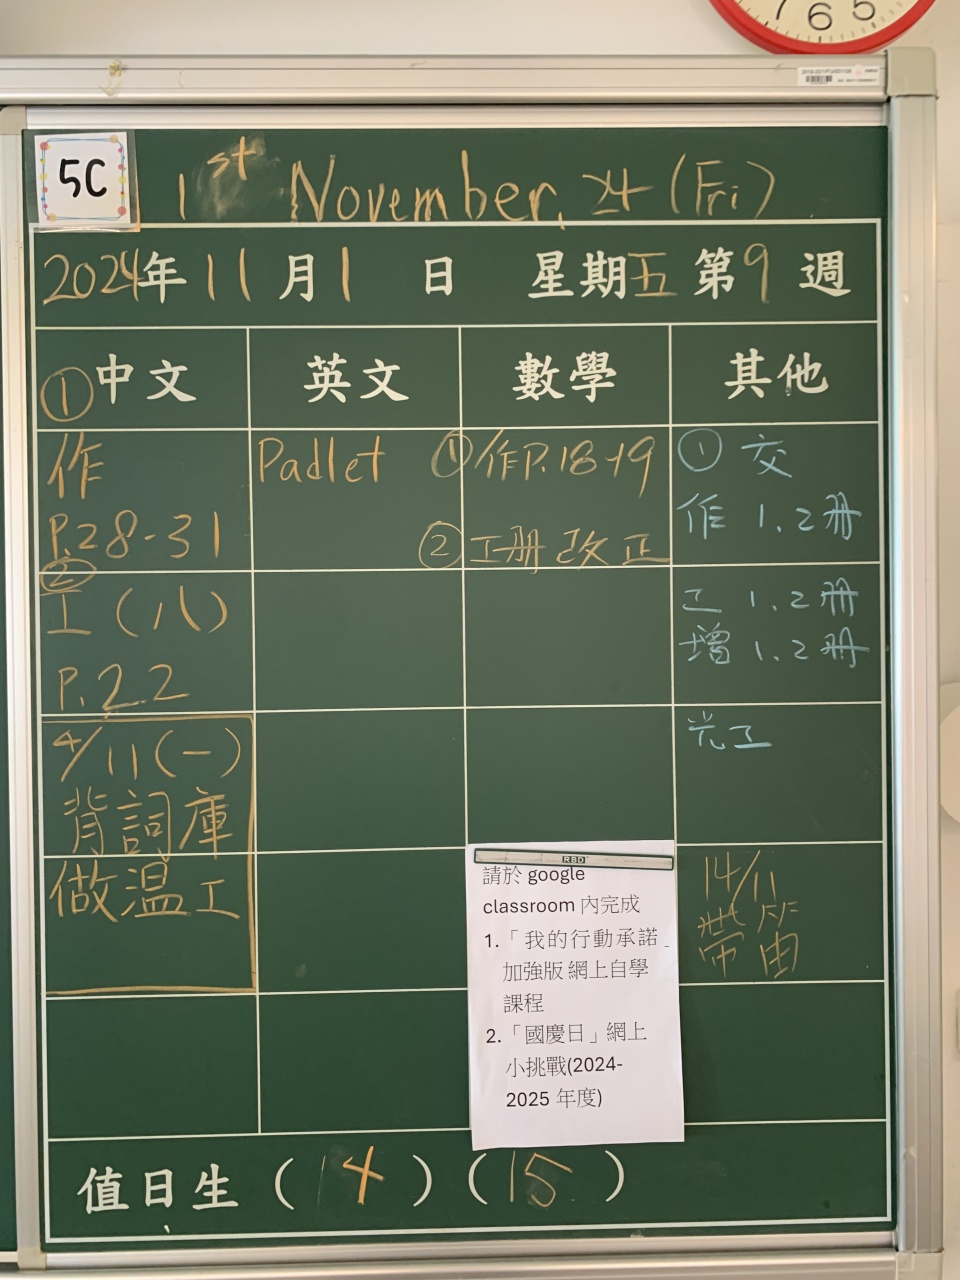 7 6 5
5C
1st November, 24 (Fri)
2024年11月1日 星期五 第9週
①中文
英文
數學
其他
作
P.28-31
②
工（八）
P.22
4/11(一)
背詞庫
做温工
Padlet
①作P.18-19
②工册改正
①交
作 1.2册
工 1.2册
增 1.2册
RBD
請於 google
classroom 內完成
1.「我的行動承諾」
加強版 網上自學
課程
2.「國慶日」網上
小挑戰(2024-
2025 年度)
14/11
帶笛
值日生（14）（15）